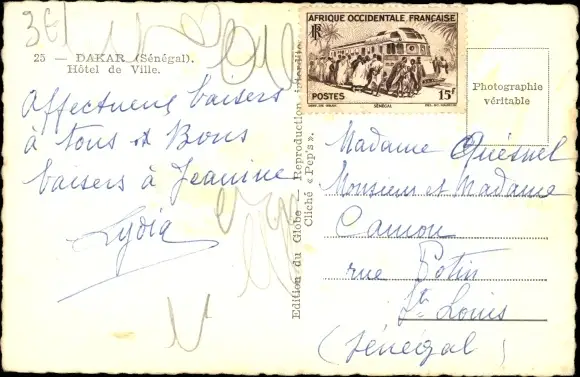 361
25 — DAKAR (Sénégal).
Hôtel de Ville.
Affectueux baisers
à tous et Bons
baisers à Jeanine
Lydia
Edition du Globe — Reproduction interdite
Cliché « Pep's ».
AFRIQUE OCCIDENTALE FRANÇAISE
RF
POSTES
15F
SÉNÉGAL
Photographie
véritable
Madame Quésnel
Monsieur et Madame
Camou
rue Potin
St. Louis
(Sénégal)